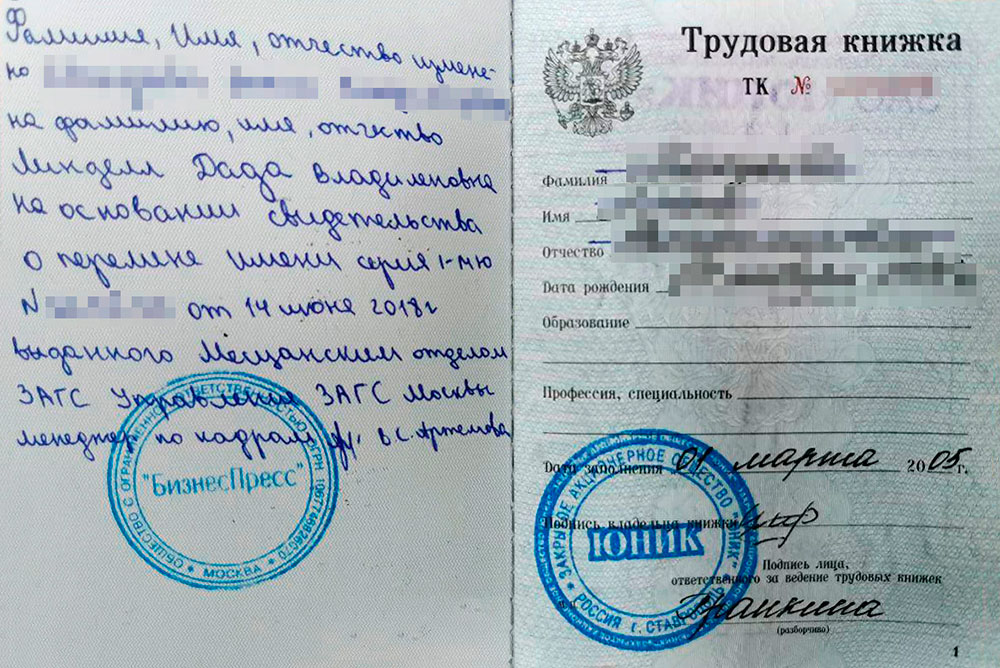 Фамилия, Имя, отчество измене-
но
на фамилию, имя, отчество
Линделл Дада Владиленовна
на основании свидетельства
о перемене имени серия I-МЮ
N от 14 июня 2018г
выданного Мещанским отделом
ЗАГС Управления ЗАГС Москвы
менеджер по кадрам В.С. Артемова
ОБЩЕСТВО С ОГРАНИЧЕННОЙ ОТВЕТСТВЕННОСТЬЮ
"БизнесПресс"
МОСКВА
Трудовая книжка
ТК №
Фамилия
Имя
Отчество
Дата рождения
Образование
Профессия, специальность
Дата заполнения 01 марта 2005 г.
Подпись владельца книжки
Подпись лица,
ответственного за ведение трудовых книжек
(разборчиво)
ЗАКРЫТОЕ АКЦИОНЕРНОЕ ОБЩЕСТВО "ЮНИК"
ЮНИК
РОССИЯ г. СТАВРОПОЛЬ
1